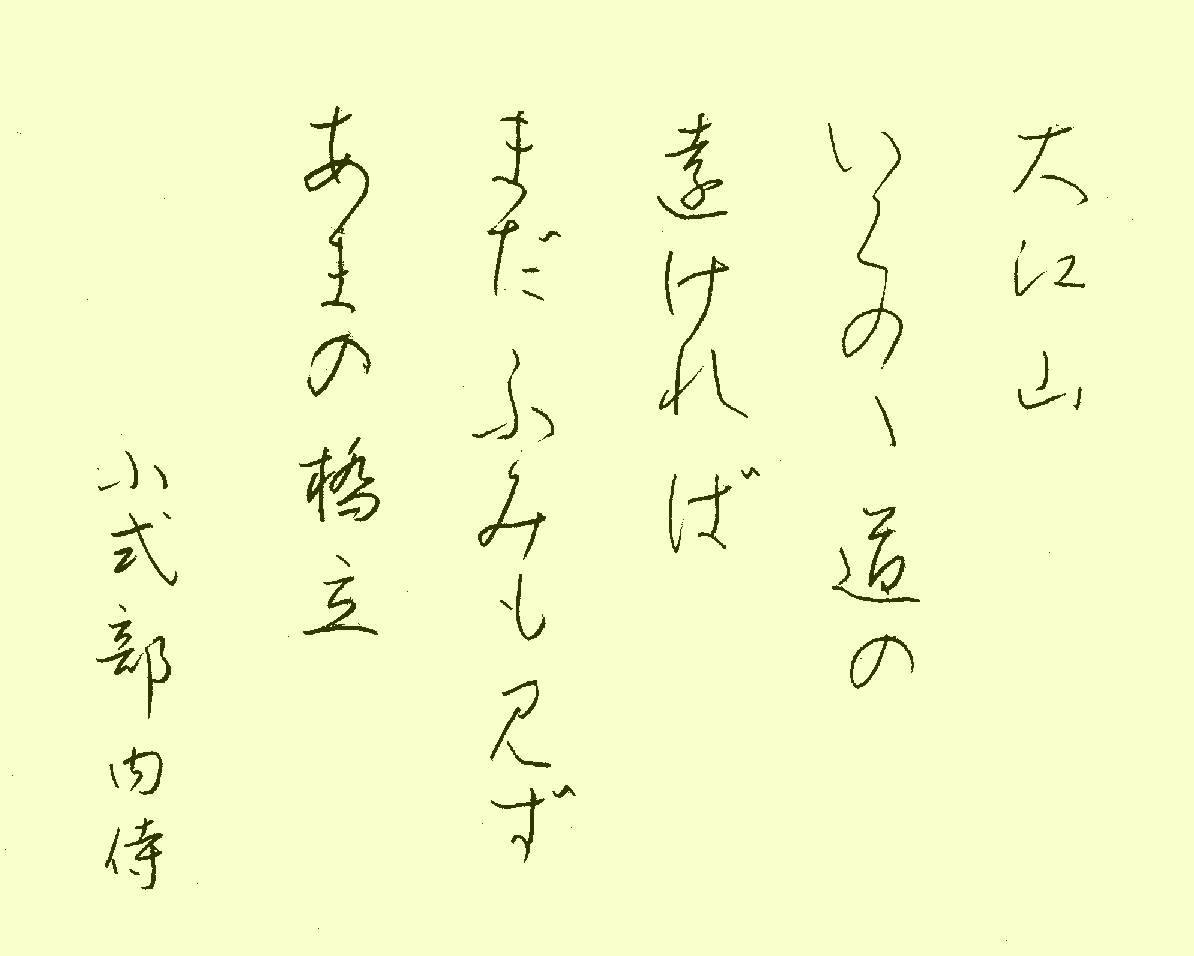 大江山
いくのゝ道の
遠ければ
まだふみも見ず
あまの橋立
小式部内侍